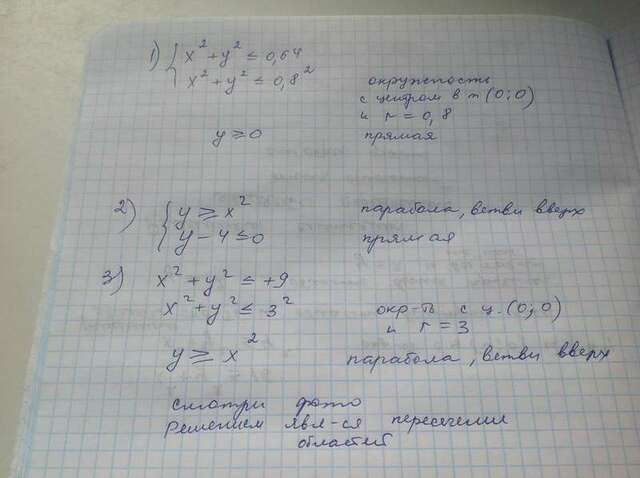 1) { x² + y² ≤ 0,64
x² + y² ≤ 0,8² окружность
с центром в т (0; 0)
и r = 0,8
y ≥ 0 прямая
2) { y ≥ x² парабола, ветви вверх
y - 4 ≤ 0 прямая
3) x² + y² ≤ +9
x² + y² ≤ 3² окр-ть с ц. (0; 0)
и r = 3
y ≥ x² парабола, ветви вверх
смотри фото
Решением явл-ся пересечение
областей